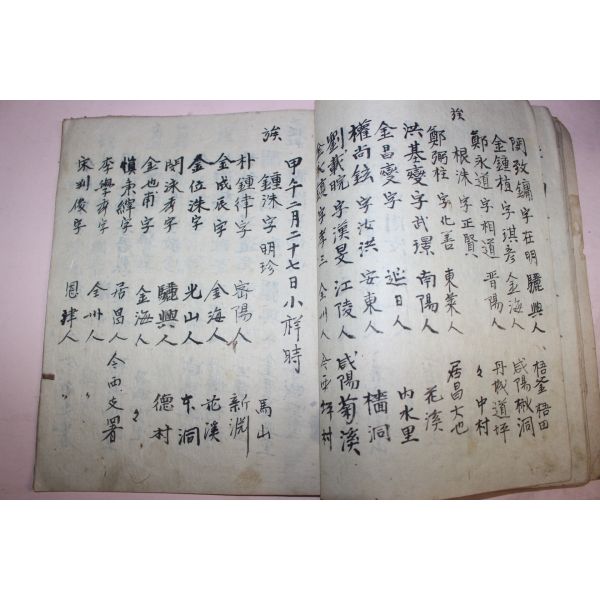 閔致鏞字在明 驪興人 梧釜梧田
金鍾植字琪彦 金海人 咸陽樹洞
鄭永道字相道 晋陽人 丹城道坪
族 根洙字正賢 々 中村
鄭弼柱字允善 東萊人 居昌大也
洪基燮字武璟 南陽人 花溪
金昌燮字 延日人 内水里
權尚鉉字汝洪 安東人 樯洞
劉載晥字漢旻 江陵人 咸陽菊溪
字孝三 全州人 村
甲午二月二十七日小祥時
族 鍾洙字明珍 馬山
朴鍾律字 密陽人 新淵
金成辰字 金海人 花溪
金位洙字 光山人 東洞
閔泳秀字 驪興人 德村
金也甫字 金海人 々
愼秉縡字 居昌人 今西支署
李學秀字 全州人 々
宋判俊字 恩津人